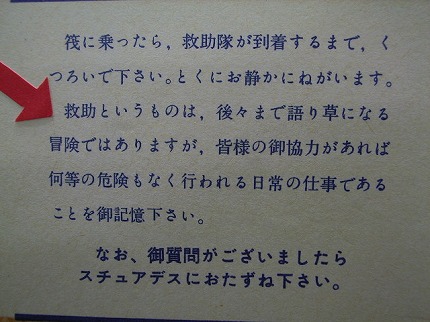 筏に乗ったら，救助隊が到着するまで，く
つろいで下さい。とくにお静かにねがいます。
救助というものは，後々まで語り草になる
冒険ではありますが，皆様の御協力があれば
何等の危険もなく行われる日常の仕事である
ことを御記憶下さい。
なお、御質問がございましたら
スチュアデスにおたずね下さい。